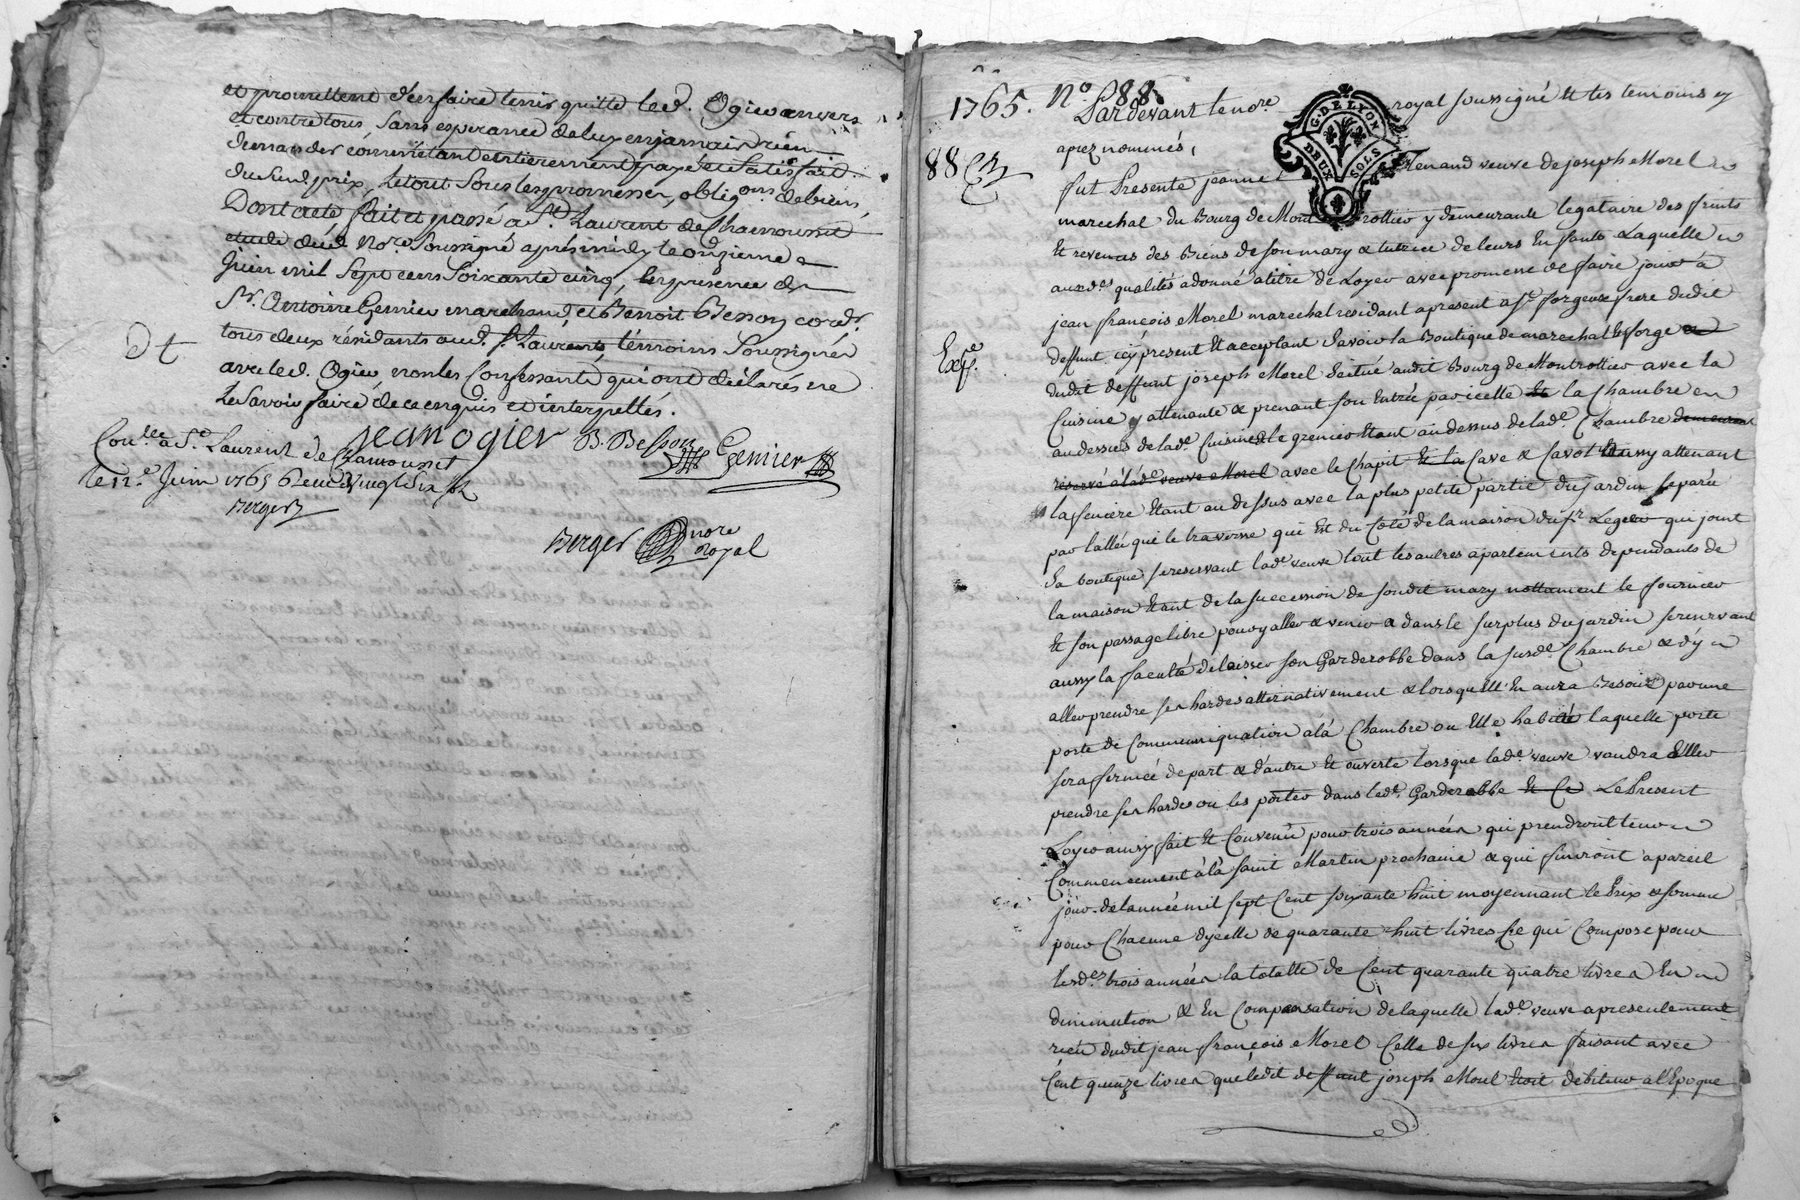 et promettent d'en faire tenir quitte led. Ogier envers
et contre tous, sans esperance de luy en jamais rien
demander comme étant entierement payé et satisfait
dud. prix, le tout sous les promesses, obligons. de biens,
Dont acte fait et passé à St. Laurent de Chamousset
étude dud. Nore. soussigné aprés midy le onzieme
Juin mil sept cens soixante cinq, en presence de
Sr. Antoine Genier marchand, et Benoit Besson cordr.
tous deux résidants aud. St. Laurent, témoins soussignés
avec led. Ogier non les Confessants qui ont déclarés ne
le savoir faire de ce enquis et interpellés.
Jean Ogier B. Besson Genier
Conllé à St. Laurent de Chamousset
le 12e. Juin 1765
Berger
Berger nore
Royal
1765. N.o 88.
88
Expe.
Pardevant le nore royal soussigné et les temoins
aprez nommés,
fut Presente jeanne Renand veuve de joseph Morel
marechal du Bourg de Montrottier y demeurante legataire des fruits
et revenus des Biens de son mary & tutrice de leurs Enfants Laquelle
auxdes qualités a donné a titre de Loyer avec promesse de faire jouir à
jean françois Morel marechal residant apresent a St. forgeux frere dudit
deffunt icy présent et acceptant Savoir la Boutique de marechal et forge
dudit deffunt joseph Morel scitué audit Bourg de Montrottier avec la
Cuisine y attenante & prenant son Entrée par icelle et la chambre en
audessus de lade. Cuisine & le grenier étant audessus delade. Chambre demeurant
reservé à lade veuve Morel avec le Chapit et la Cave & Cavot aussy attenant
la feniere étant au dessus avec la plus petite partie du jardin separé
par l'allée qui le traverse qui est du coté de la maison du sr. Legeer qui joint
la boutique se reservant lade veuve tout les autres apartements dependants de
la maison étant de la succession de sondit mary nottament le fournier
et son passage libre pour y aller & venir & dans le surplus du jardin se reservant
aussy la faculté de laisser son Garderobbe dans la susde. Chambre & d'y
aller prendre ses hardes alternativement & lorsqu'Elle En aura Besoin par une
porte de Communiquation à là Chambre ou Elle habite laquelle porte
sera fermée de part & d'autre et ouverte lorsque lade. veuve voudra aller
prendre ses hardes ou les porter dans led. Garderobbe et ce Le Present
Loyer ainsy fait et Convenu pour trois années qui prendront leur
Commencement à là saint Martin prochaine & qui finiront a pareil
jour de l'année mil sept Cent soixante huit moyennant le Prix & somme
pour Chacune dycelle de quarante huit livres Ce qui Compose pour
lesdes trois années la totalle de Cent quarante quatre livres En
diminution & En Compensation de laquelle lade. veuve a presentement
dudit jean françois Morel Celle de six livres faisant avec
Cent quinze livres que ledit deffunt joseph Morel Etoit debiteur a l'Epoque
G. DE LYON
DEUX SOLS